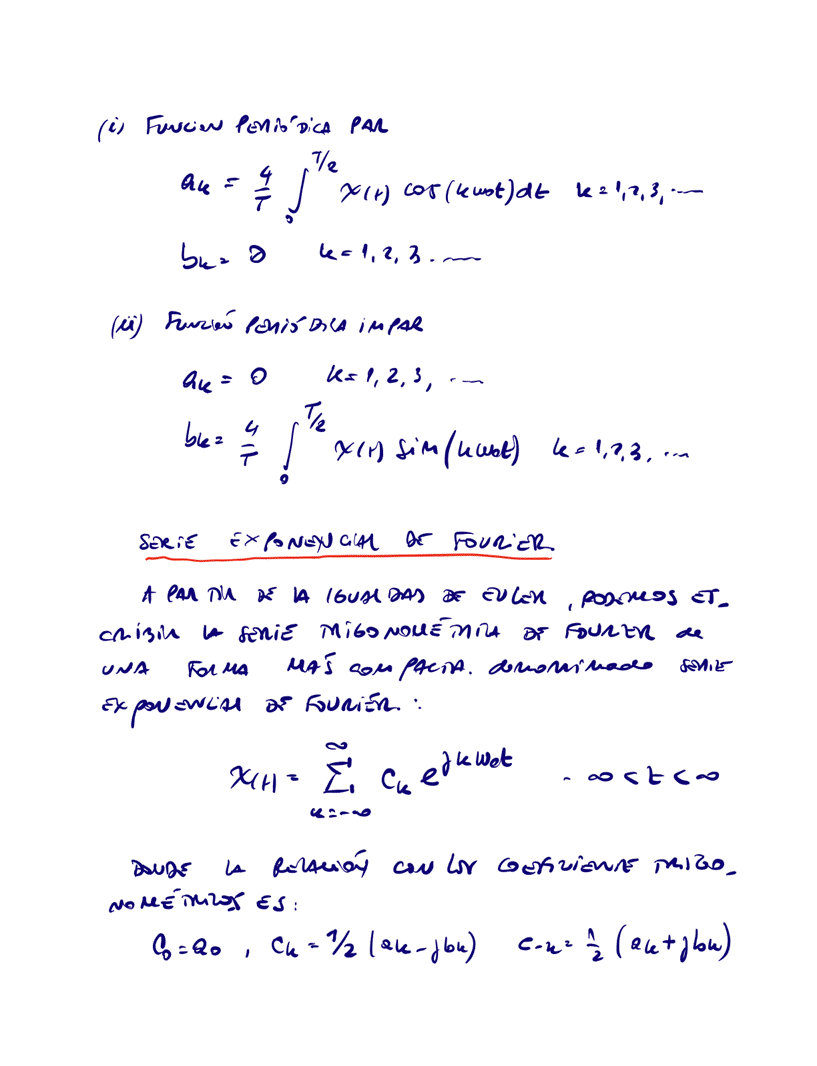 (i) FUNCION PERIÓDICA PAR
ak = 4/T ∫₀^{T/2} x(t) cos(kω₀t)dt k=1,2,3,....
bk = 0 k=1,2,3....
(ii) FUNCIÓN PERIÓDICA IMPAR
ak = 0 k=1,2,3,....
bk = 4/T ∫₀^{T/2} x(t) sin(kω₀t) k=1,2,3,...
SERIE EXPONENCIAL DE FOURIER
A PARTIR DE LA IGUALDAD DE EULER, PODEMOS ES-
CRIBIR LA SERIE TRIGONOMÉTRICA DE FOURIER de
UNA FORMA MÁS COMPACTA. denominado SERIE
EXPONENCIAL DE FOURIER.:
x(t) = ∑_{k=-∞}^{∞} Ck e^{jkω₀t} -∞<t<∞
DONDE LA RELACIÓN CON LOS COEFICIENTE TRIGO-
NOMÉTRICOS ES:
C₀=a₀, Ck = 1/2 (ak-jbk) C-k = 1/2 (ak+jbk)